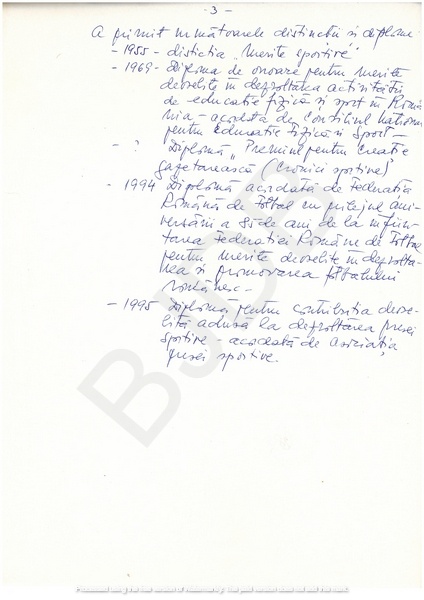 - 3 -
A primit următoarele distincții și diplome
- 1955 - distictia "Merite sportive"
- 1969 - Diploma de onoare pentru merite
deosebite în dezvoltarea activității
de educatie fizică si sport în Româ
nia - acordată de consiliul national
pentru Educatie fizică si Sport -
- ? Diplomă "Premiul pentru creatie
gazetărească (cronici sportive)"
- 1994 Diplomă acordată de Federatia
Română de Fotbal cu prilejul ani-
versării a 85 de ani de la înfiin-
tarea Federatiei Române de Fotbal
pentru merite deosebite în dezvolta-
rea si promovarea fotbalului
românesc -
- 1995 Diplomă pentru contributia deose-
bită adusă la dezvoltarea presei
sportive acordată de asociația
presei sportive.